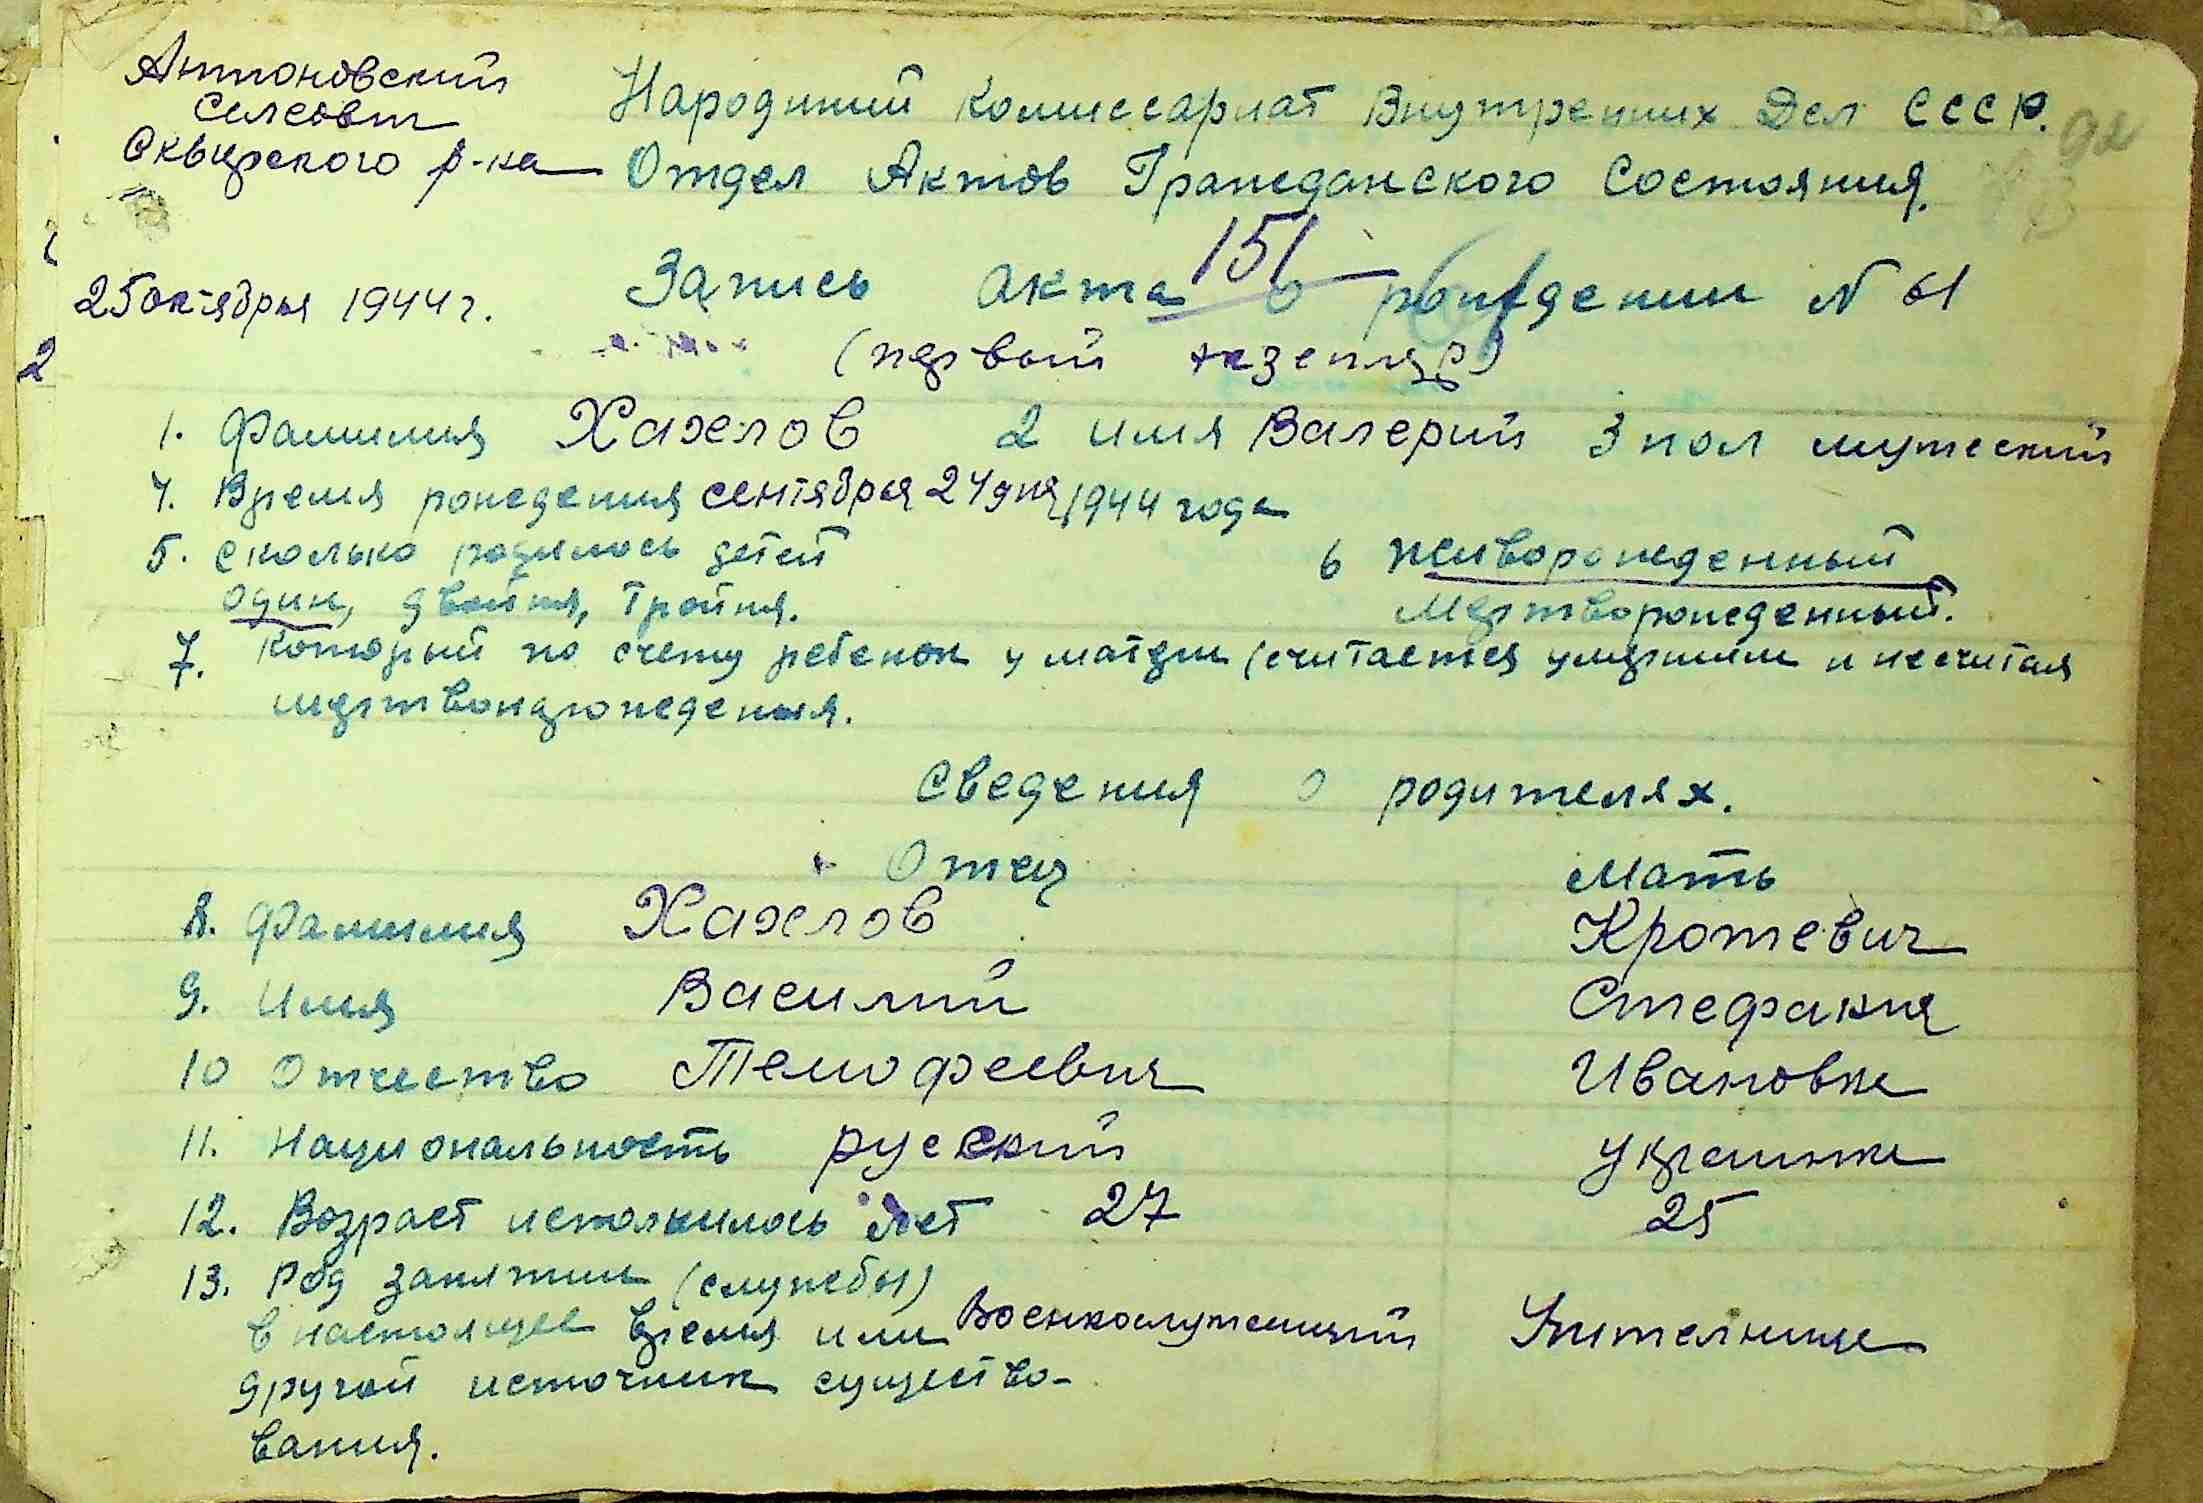 Антоновский
Сельсовет
Сквирского р-на
Народный Комиссариат Внутренних Дел СССР.
Отдел Актов Гражданского Состояния.
151
25 октября 1944 г.
Запись акта о рождении № 61
(первый экземпляр)
1. Фамилия Хахлов 2 имя Валерий 3 пол мужеский
4. Время рождения сентября 24 дня 1944 года
5. Сколько родилось детей
один, двойня, тройня.
6 живорожденный
мертворожденный.
7. который по счету ребенок у матери (считается умершим и не считая
мертвонарождения.
Сведения о родителях.
Отец Мать
8. Фамилия Хахлов Кротевич
9. Имя Василий Стефания
10 Отчество Темофеевич Ивановна
11. Национальность русский украинка
12. Возраст исполнилось лет 27 25
13. Род занятии (службы)
в настоящее время или Военнослужащий Учителница
другой источник существо-
вания.